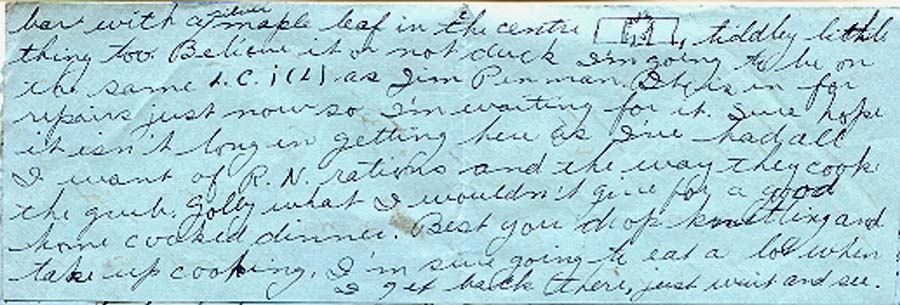 bar with a silver maple leaf in the centre, tiddley little
thing too. Believe it or not duck I'm going to be on
the same L.C.I (L) as Jim Penman. It is in for
repairs just now so I'm waiting for it. Sure hope
it isn't long in getting here as I've had all
I want of R.N. rations and the way they cook
the grub. Golly what I wouldn't give for a good
home cooked dinner. Best you drop knitting and
take up cooking. I'm sure going to eat a lot when
I get back there, just wait and see.